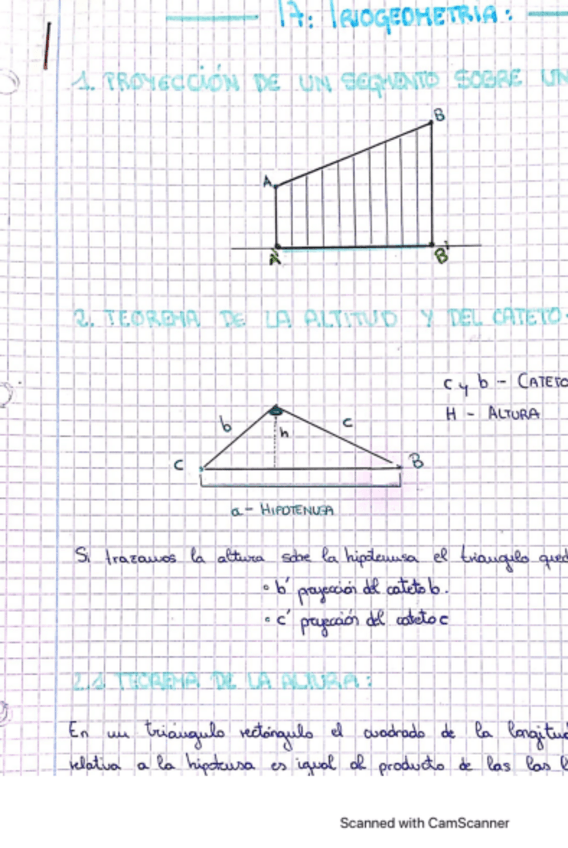 17: TRIOGEOMETRIA:
1. PROYECCIÓN DE UN SEGMENTO SOBRE UN
B
A
A'
B'
2. TEOREMA DE LA ALTITUD Y DEL CATETO.
c y b - CATETO
H - ALTURA
b
c
h
C
B
a - HIPOTENUSA
Si trazamos la altura sobre la hipotenusa el triangulo qued
• b' proyección del cateto b.
• c' proyección del cateto c
2.1 TEOREMA DE LA ALTURA:
En un triángulo rectángulo el cuadrado de la longitud
relativa a la hipotenusa es igual al producto de las las l
Scanned with CamScanner